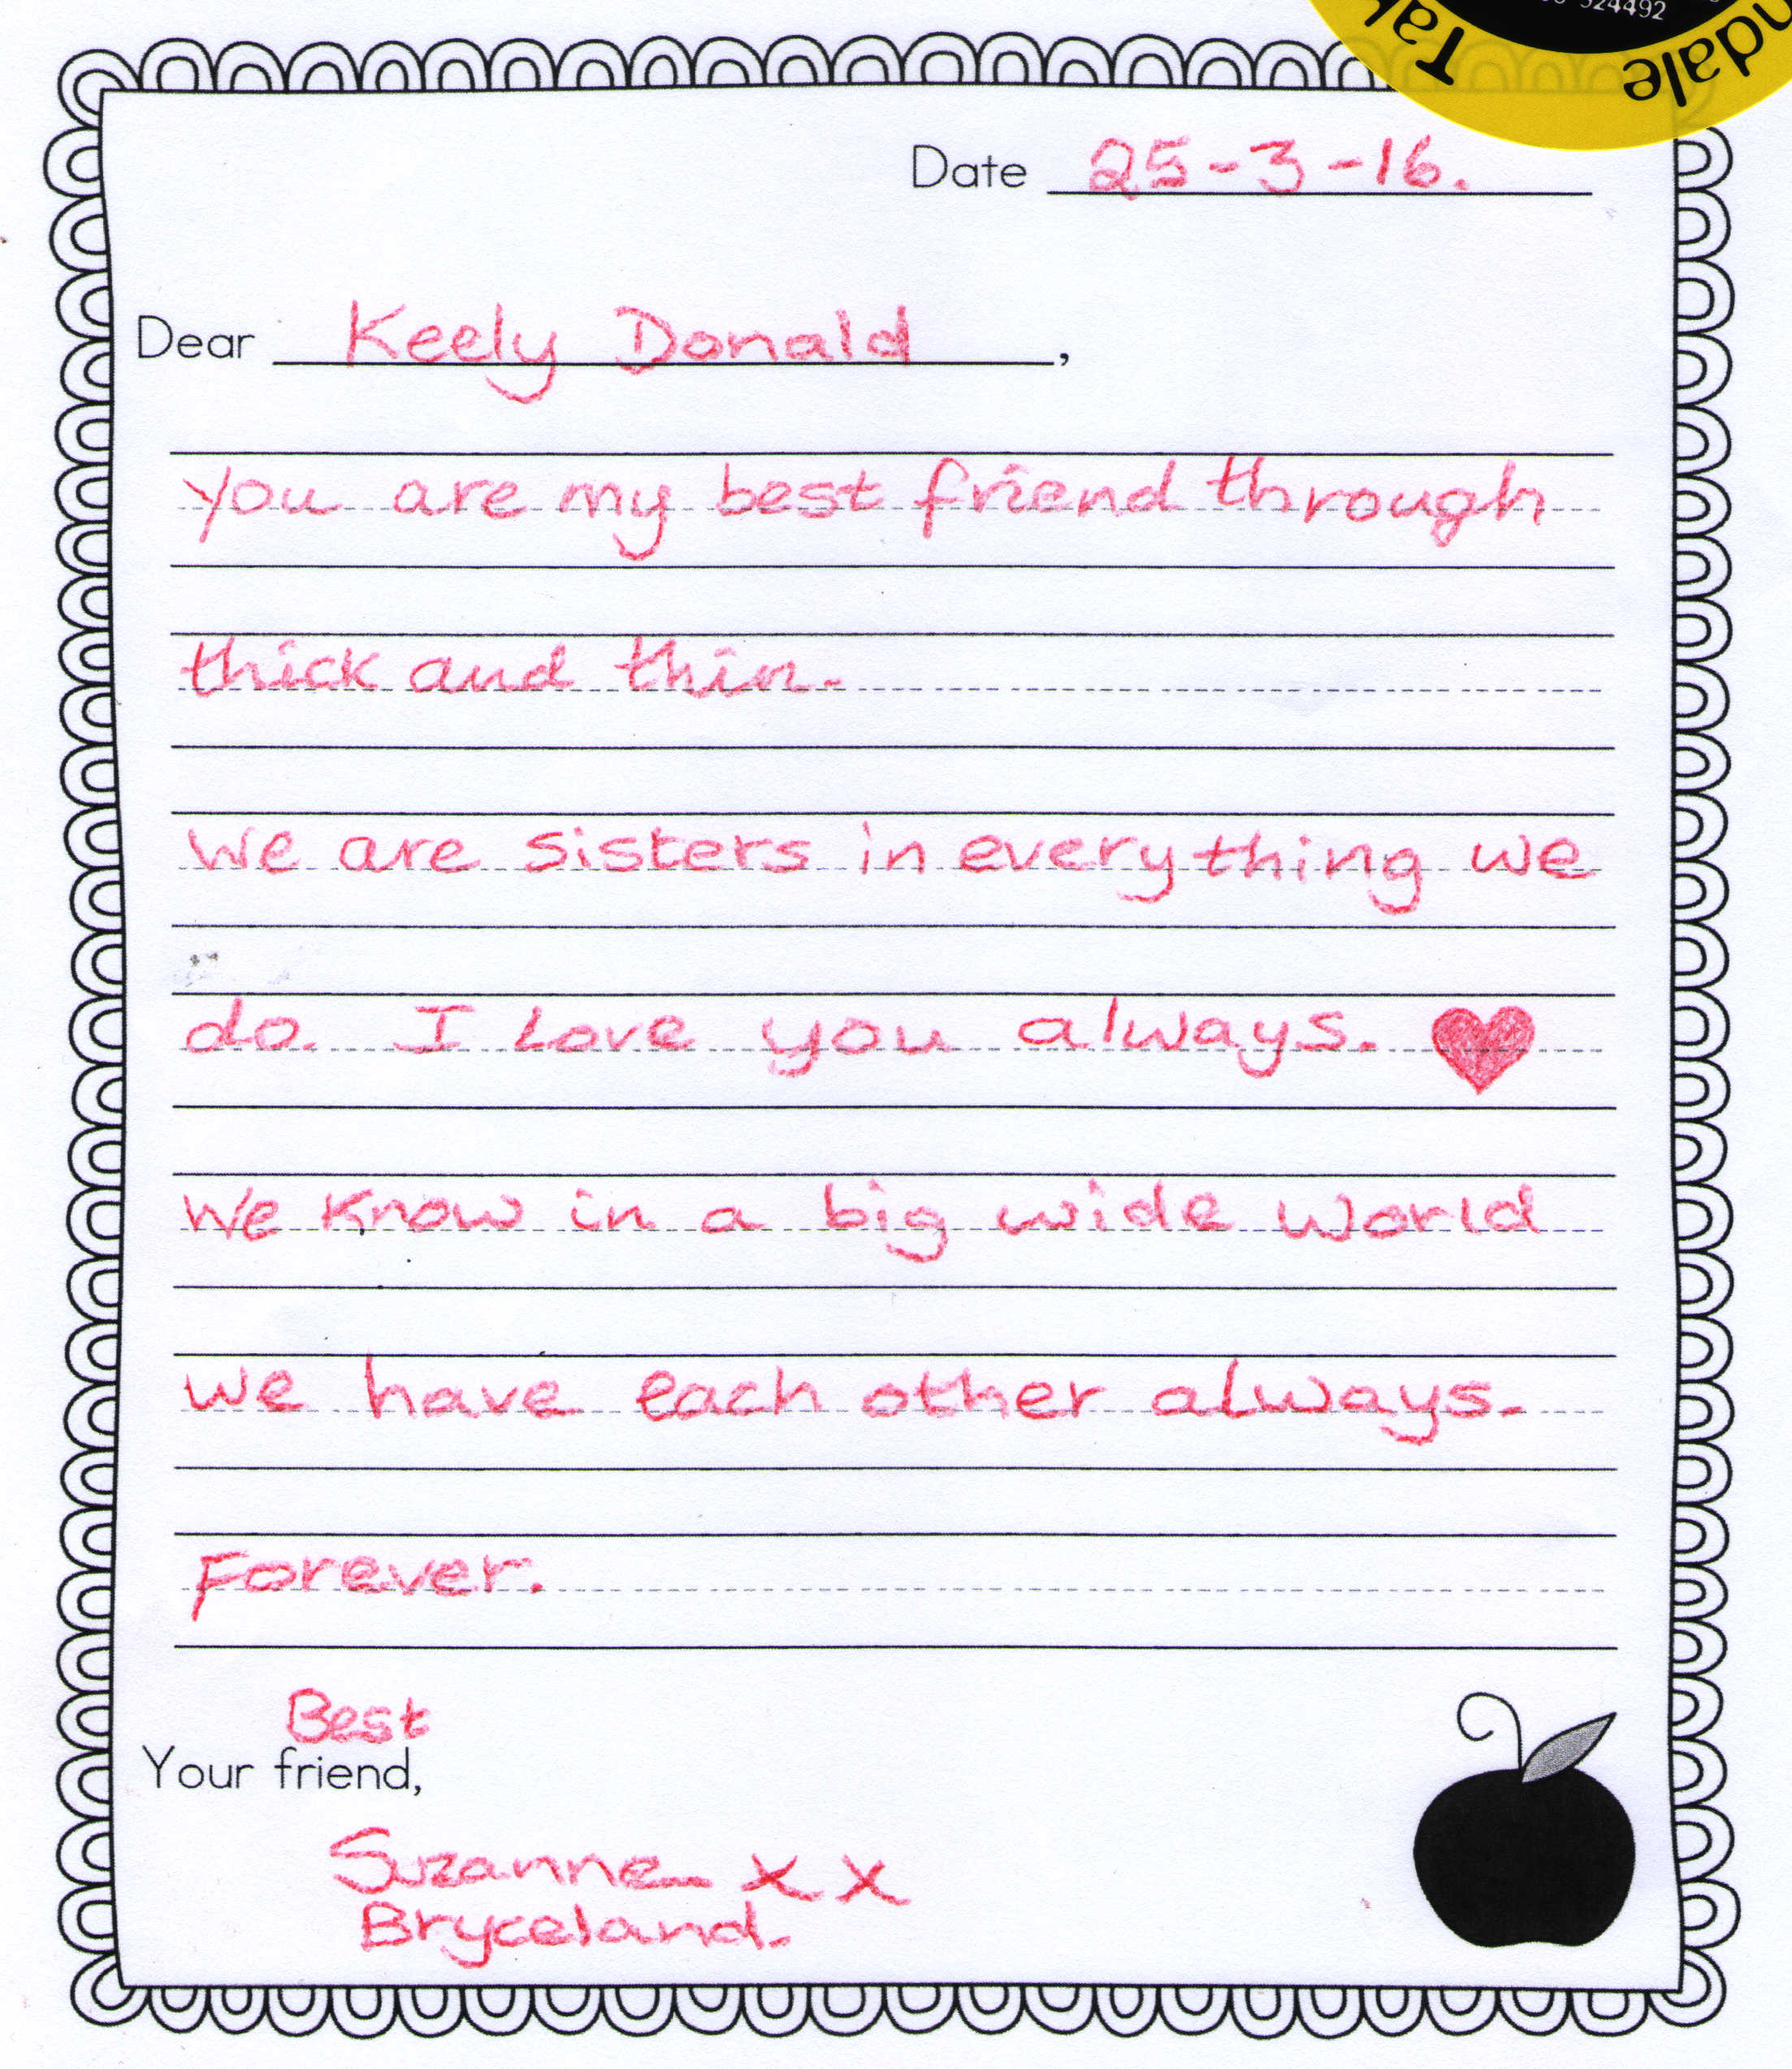 324492
ndale Tak
Date 25-3-16.
Dear Keely Donald,
you are my best friend through
thick and thin.
We are sisters in everything we
do. I Love you always.
We know in a big wide world
we have each other always.
Forever.
Best
Your friend,
Suzanne x x
Bryceland.